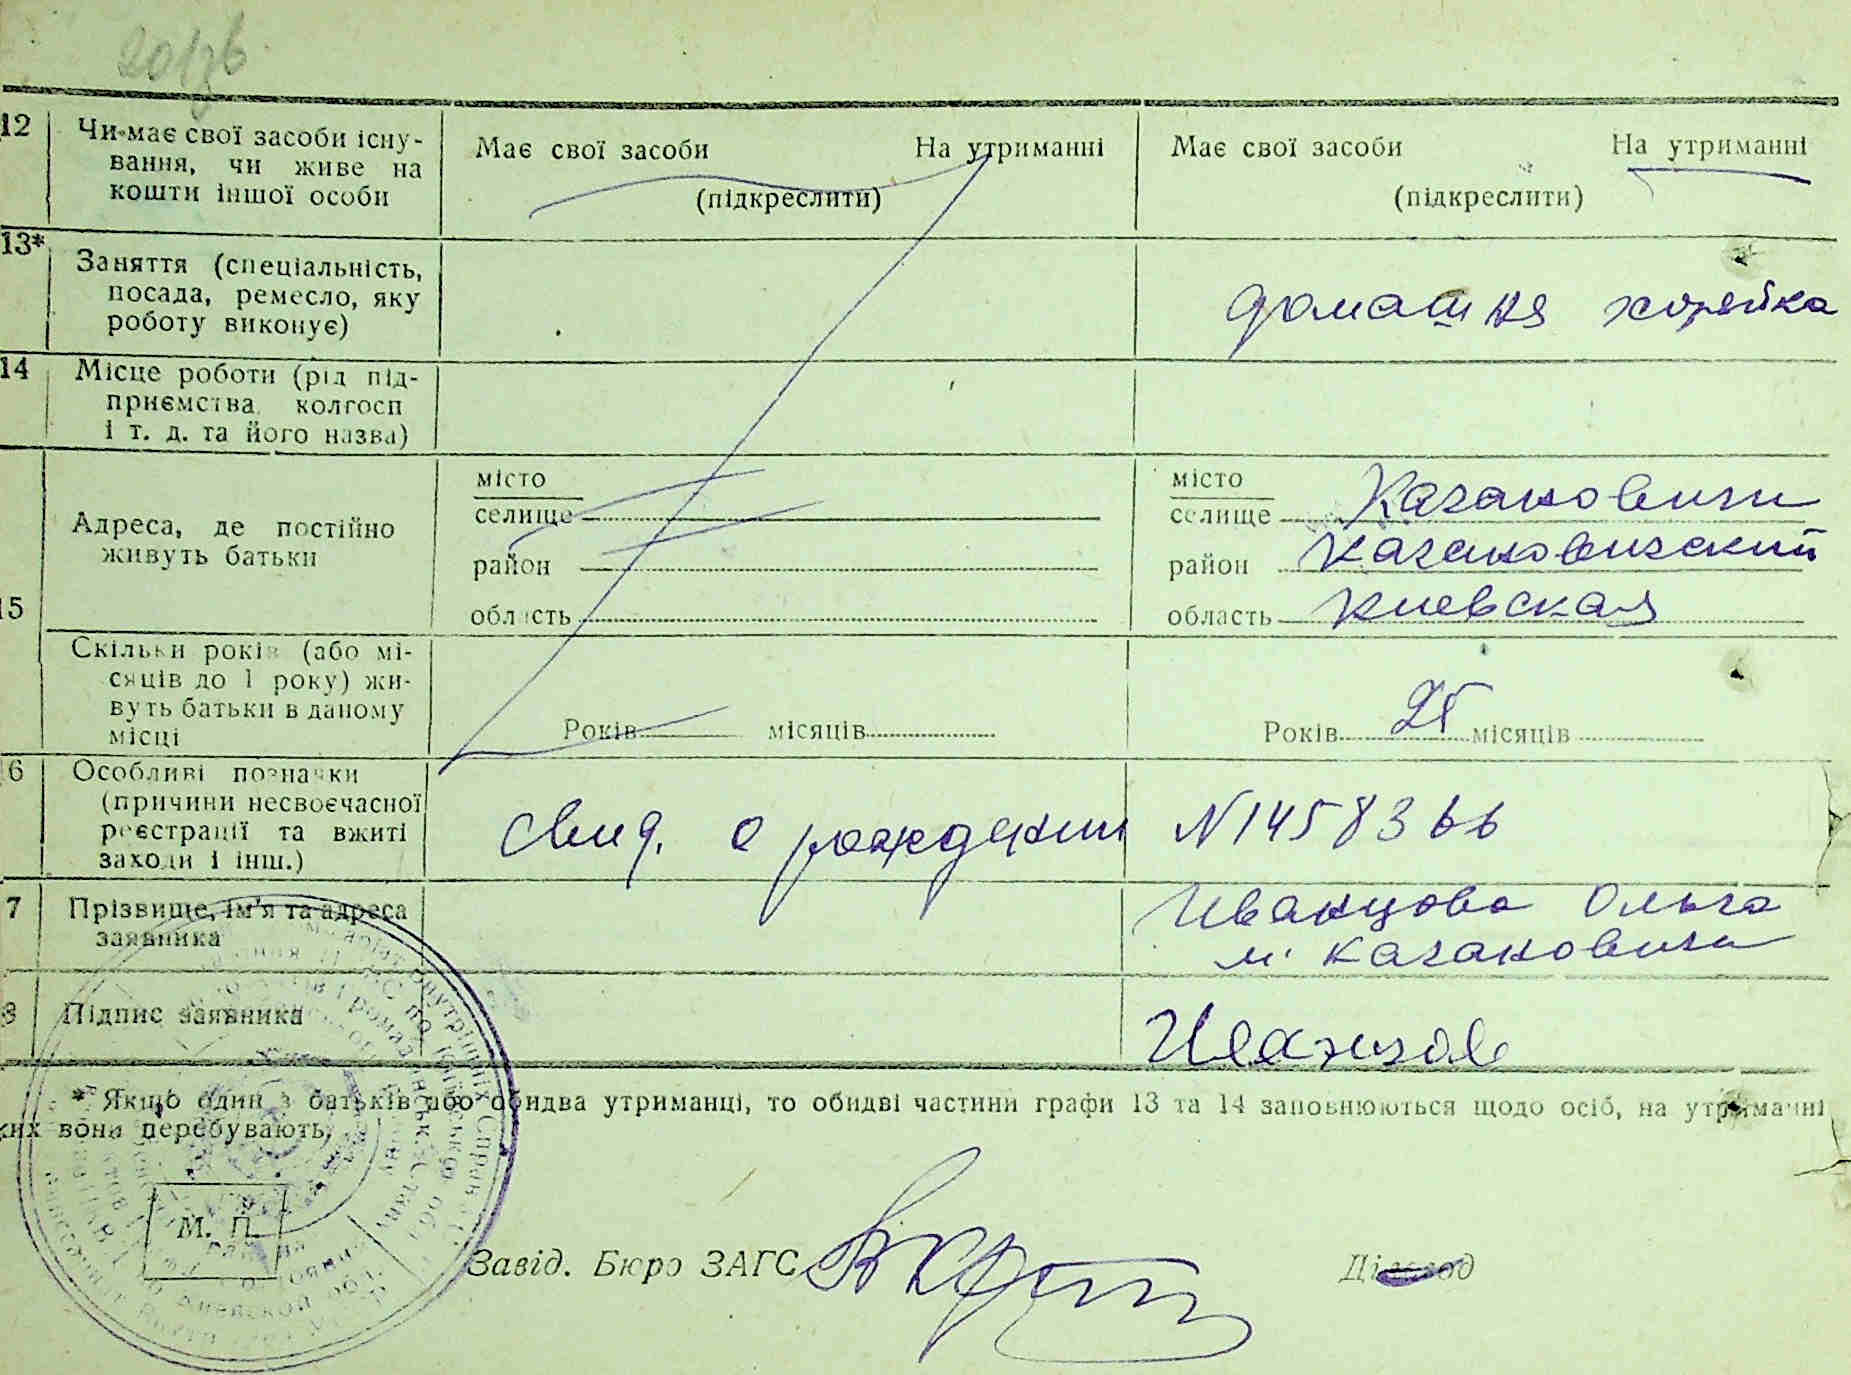 12 Чи має свої засоби існу-
вання, чи живе на
кошти іншої особи
Має свої засоби На утриманні
(підкреслити)
Має свої засоби На утриманні
(підкреслити)
13* Заняття (спеціальність,
посада, ремесло, яку
роботу виконує)
домашня хозяйка
14 Місце роботи (рід під-
приємства, колгосп
і т. д. та його назва)
15 Адреса, де постійно
живуть батьки
місто
селище
район
область
місто
селище Казановичи
район Казановичский
область Киевская
Скільки років (або мі-
сяців до 1 року) жи-
вуть батьки в даному
місці
Років місяців
Років 25 місяців
6 Особливі позначки
(причини несвоєчасної
реєстрації та вжиті
заходи і інш.)
Свид. о рождении N 145836
7 Прізвище, ім'я та адреса
заявника
Иванцова Ольга
м. Казановичи
8 Підпис заявника
Иванцов
* Якщо один з батьків або обидва утриманці, то обидві частини графи 13 та 14 заповнюються щодо осіб, на утриманні
ких вони перебувають.
М. П.
Завід. Бюро ЗАГС
Діловод